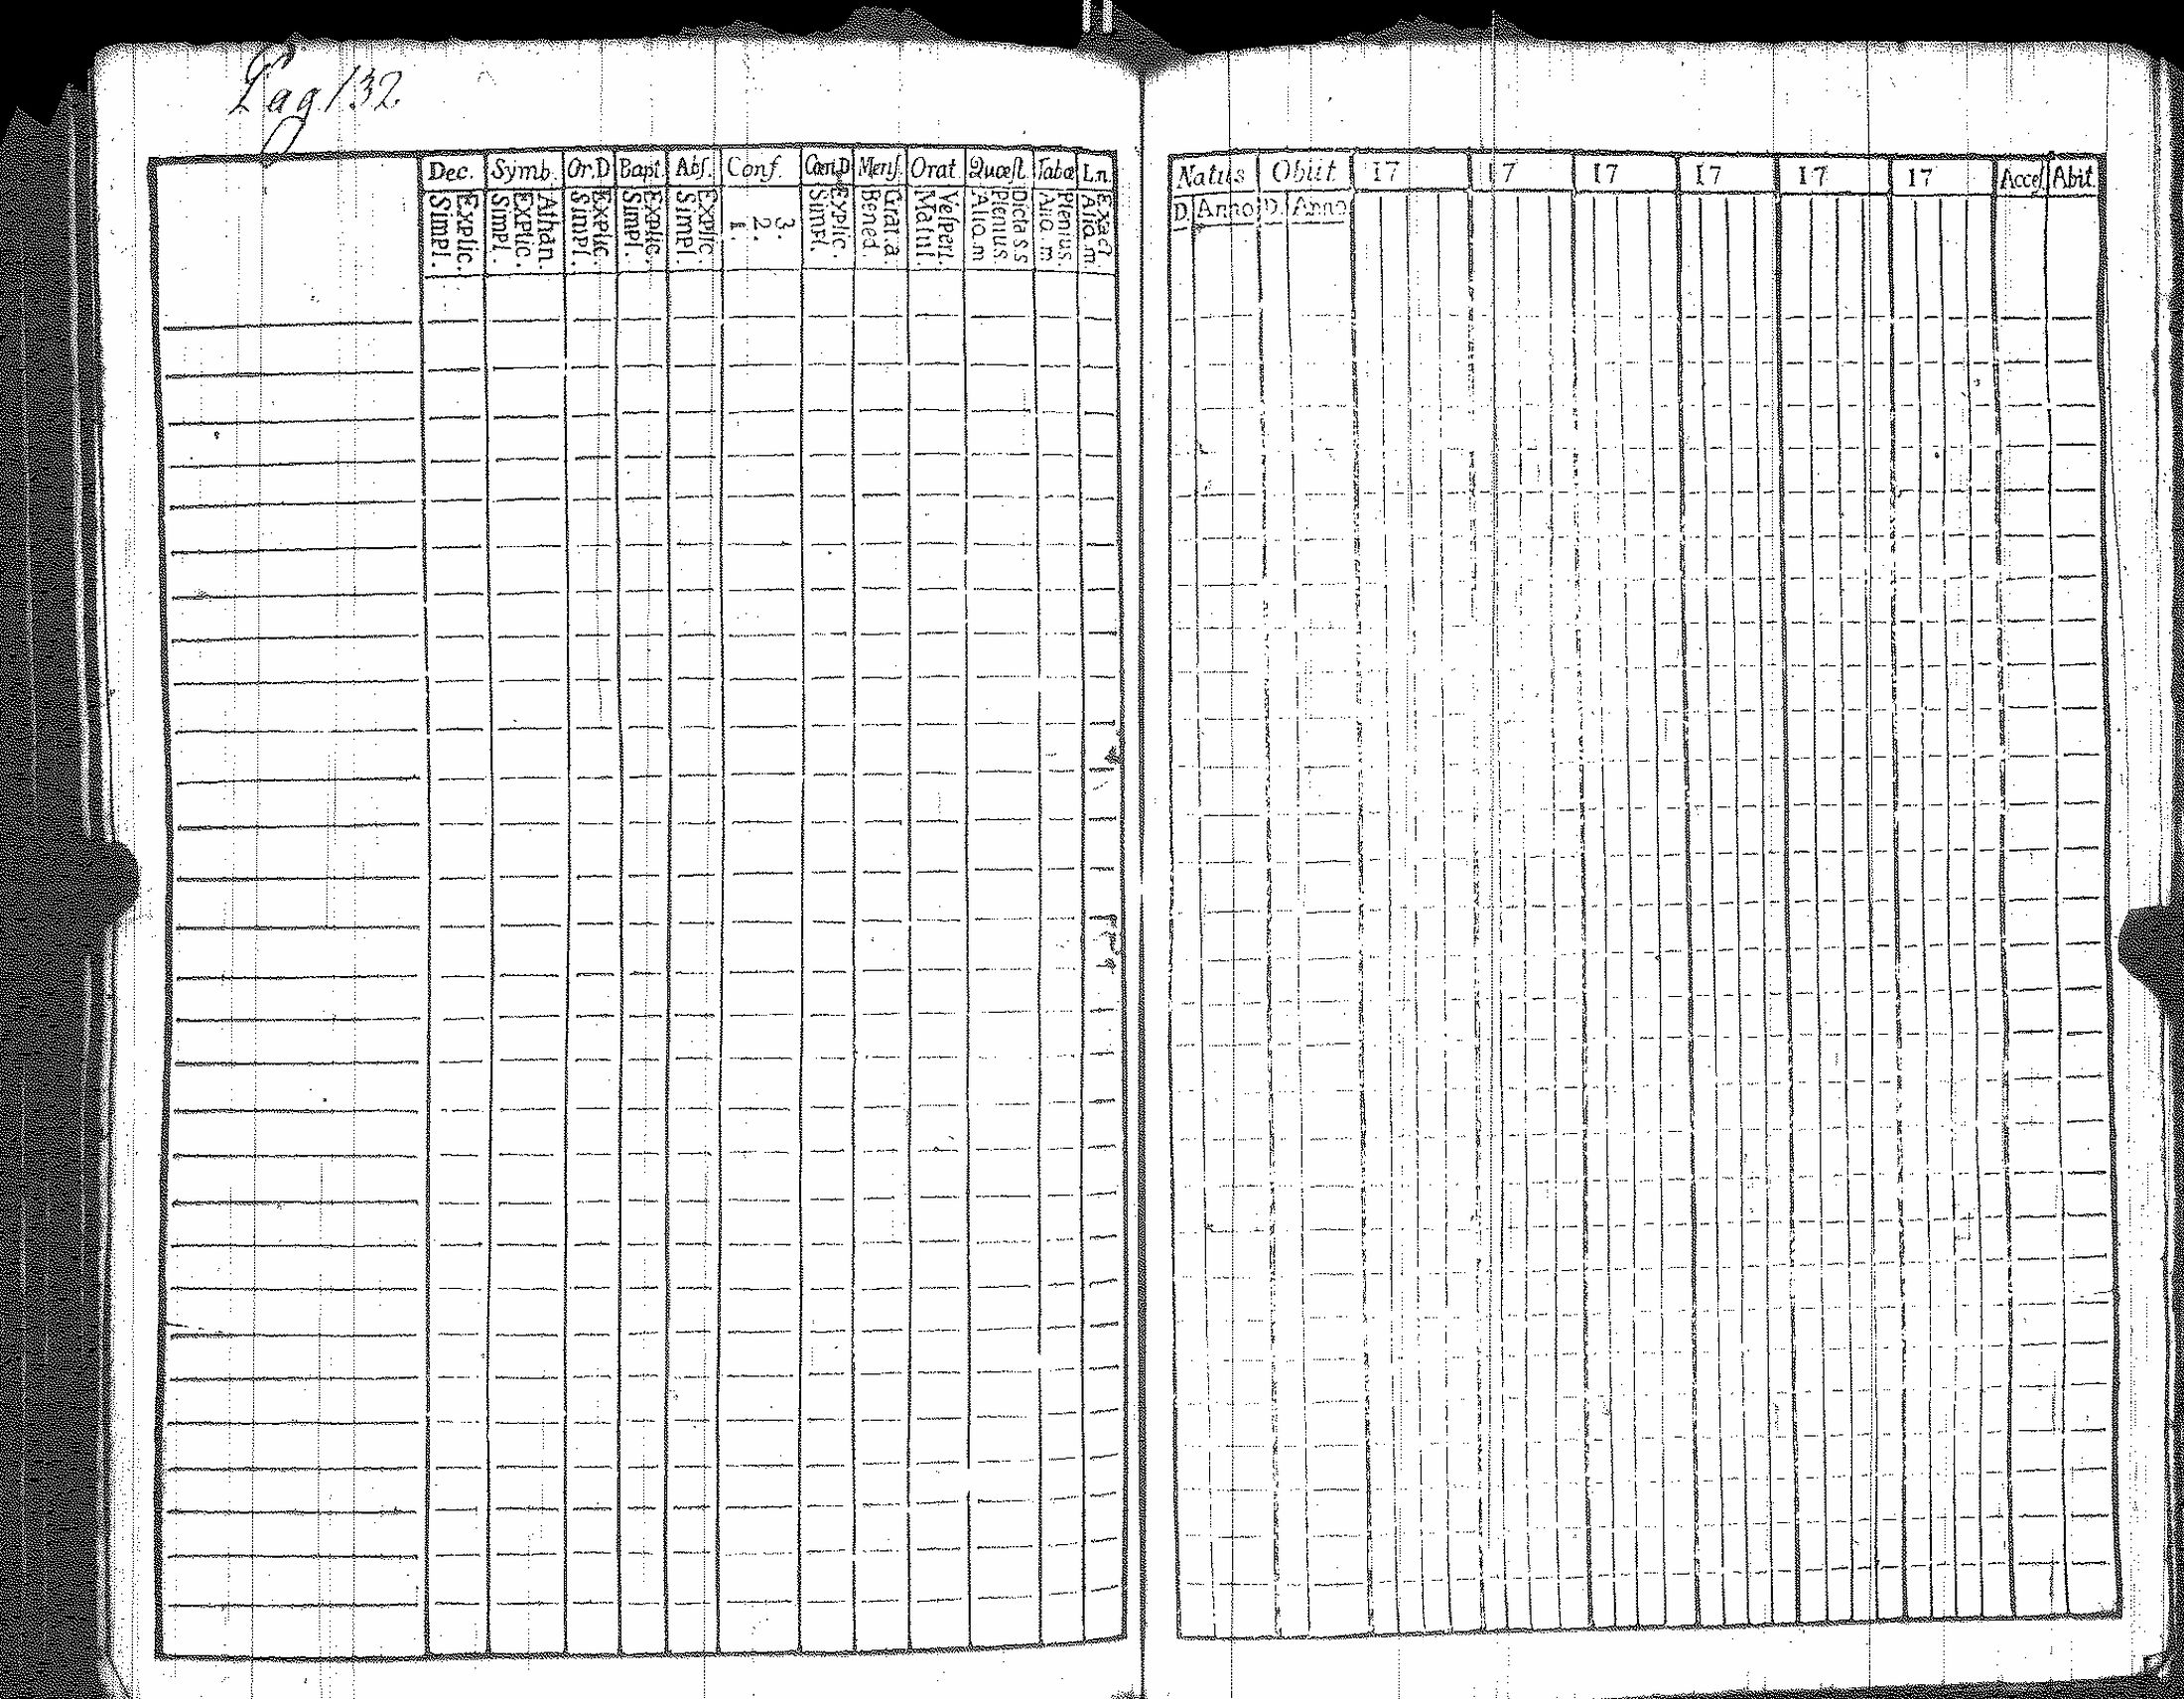 Pag 132
Dec. Symb. Or.D Bapt. Abs. Conf. Cœn.D Mens. Orat. Quæst. Tabœ Ln.
Explic. Simpl. Athan. Explic. Simpl. Explic. Simpl. Explic. Simpl. Explic. Simpl. 3. 2. 1. Explic. Simpl. Grat.a. Bened. Vesperi. Matut. Dicta s.s Plenius. Alio.m Plenius. Alio.m Exact Alio.m.
Natus Obiit 17 17 17 17 17 17 Acces. Abit.
D. Anno D. Anno